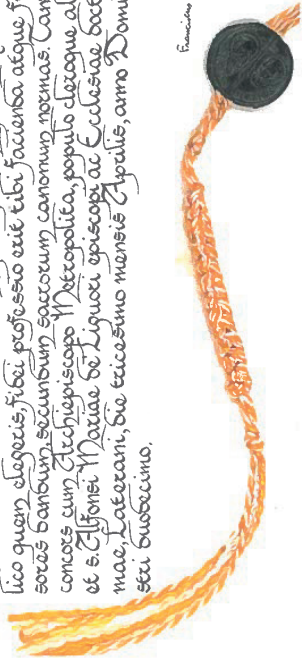 lico quem elegeris, fidei professio erit tibi facienda atque
sores dandum, secundum sacrorum canonum normas.
concors cum Archiepiscopo Metropolita, populo cleroque
et s. Alfonsi Mariae de Liguori episcopi ac Ecclesiae doct
mae Laterani, die tricesimo mensis Aprilis, anno Domi
stri duodecimo.